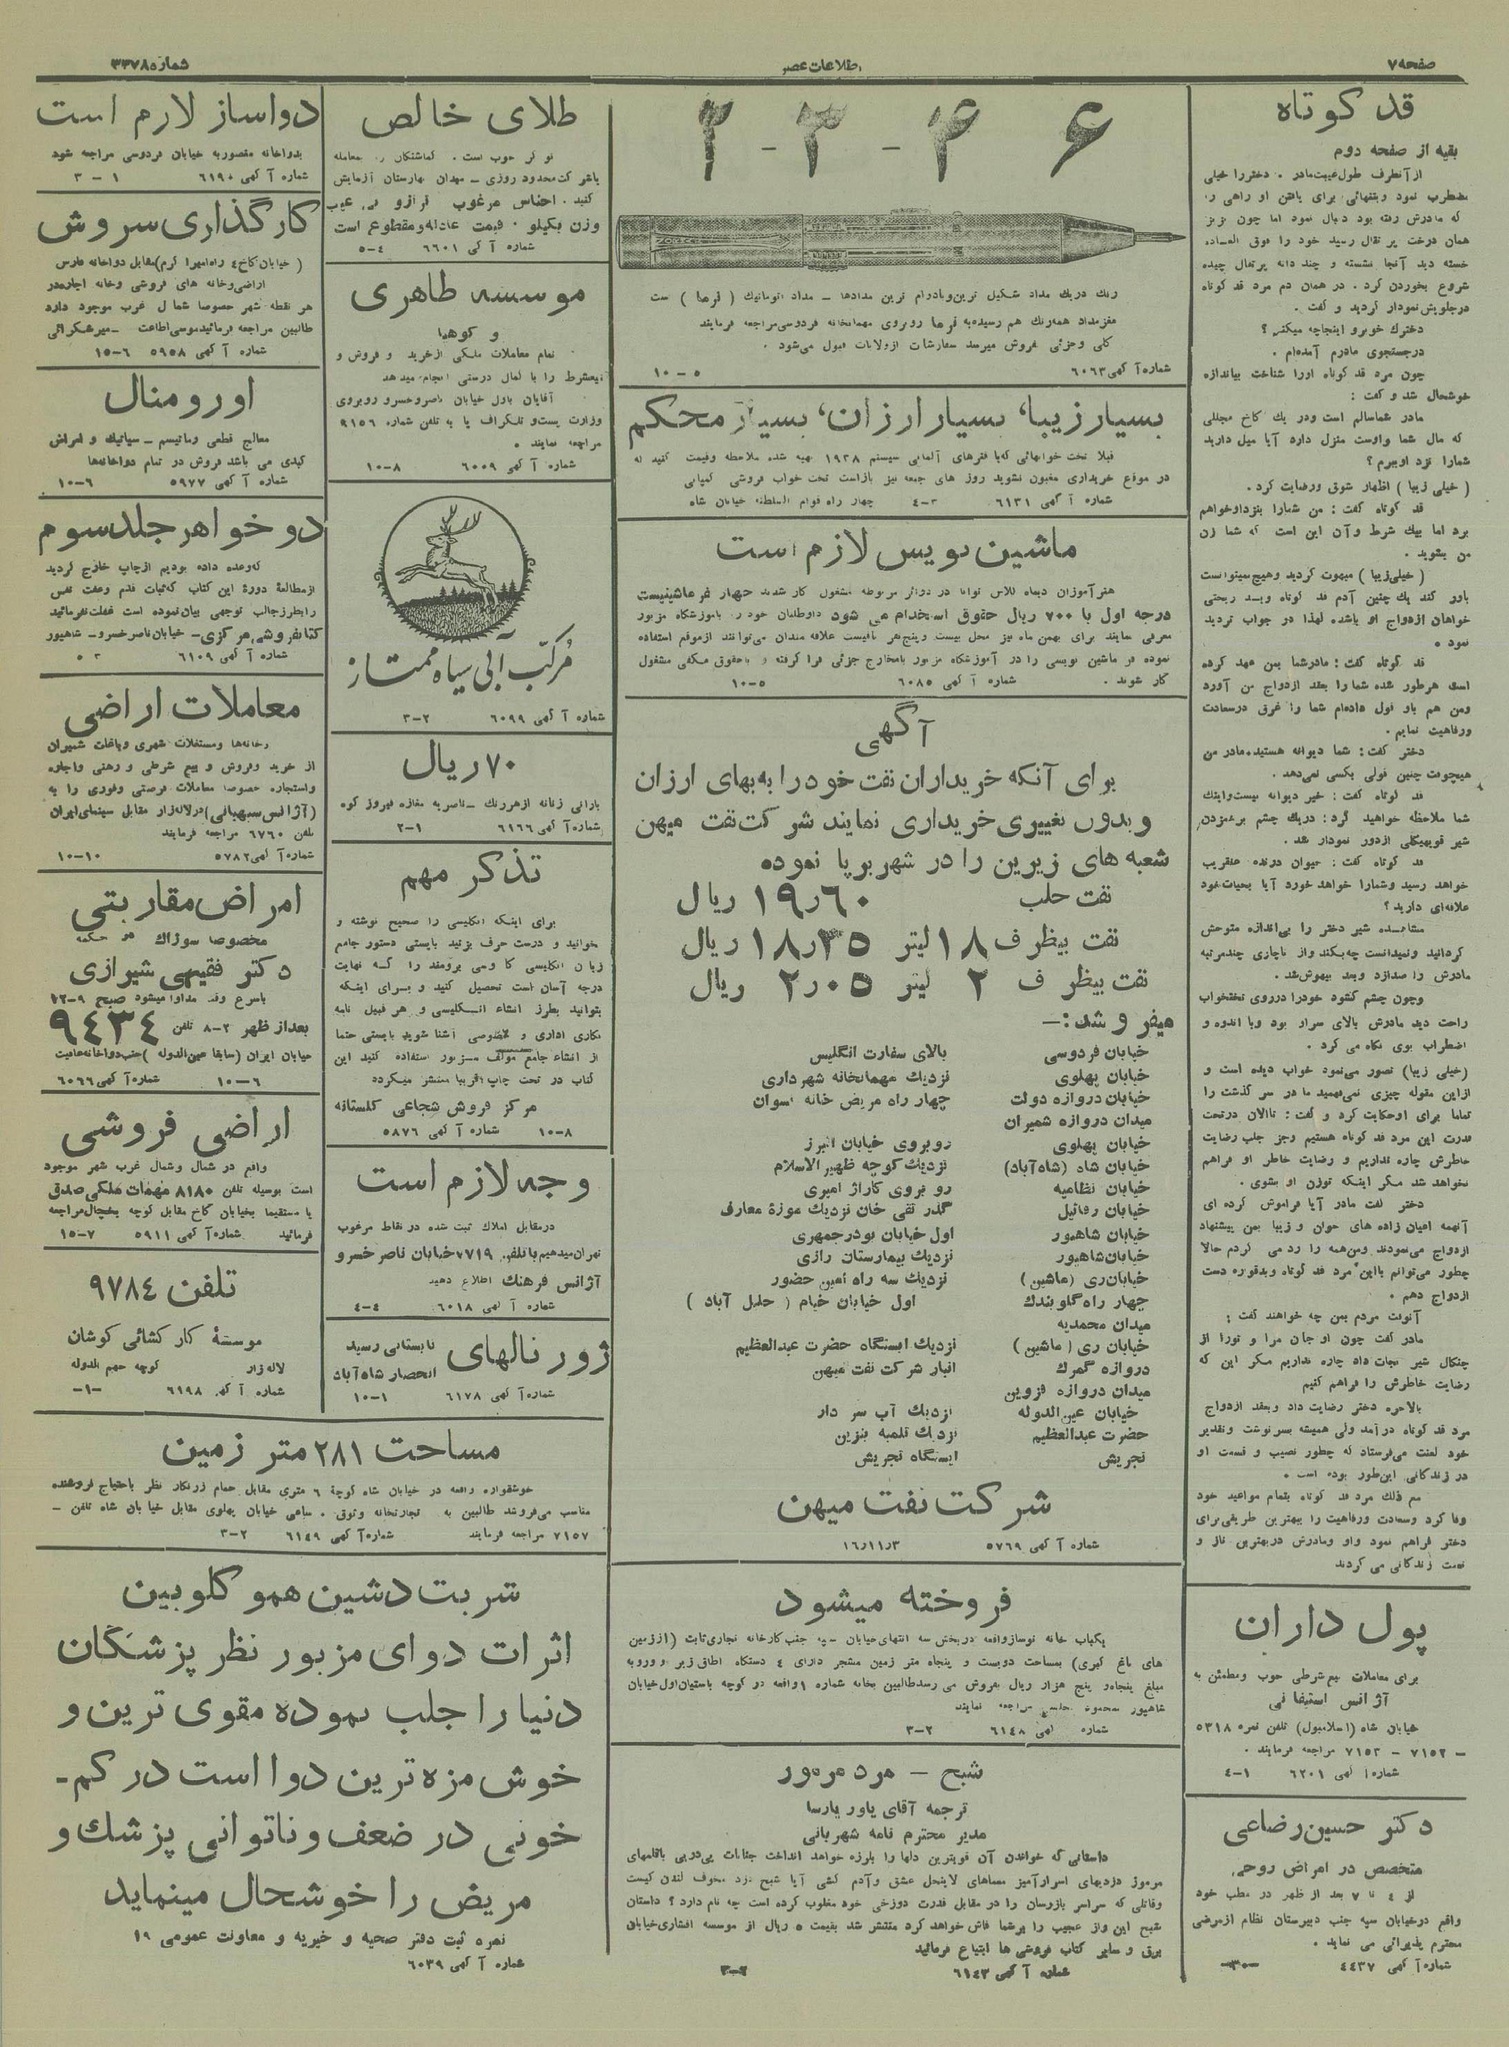 صفحه ۷
اطلاعات عصر
شماره ۳۳۷۸
قد کوتاه
بقیه از صفحه دوم
از آنطرف طول غیبت مادر . دختر را خیلی
مضطرب نمود و بتنهائی برای یافتن او راهی را
که مادرش رفته بود دنبال نمود اما چون نزیز
همان درخت پرتقال رسید خود را فوق العاده
خسته دید آنجا نشسته و چند دانه پرتقال چیده
شروع بخوردن کرد . در همان دم مرد قد کوتاه
در جلویش نمودار گردید و گفت .
دخترک خوبرو اینجا چه میکنی ؟
در جستجوی مادرم آمده‌ام .
چون مرد قد کوتاه اورا شناخت بی‌اندازه
خوشحال شد و گفت :
مادر شما سالم است و در یک کاخ مجللی
که مال شما و اوست منزل دارد آیا میل دارید
شمارا نزد او ببرم ؟
( خیلی زیبا ) اظهار شوق و رضایت کرد .
قد کوتاه گفت : من شمارا بنزد او خواهم
برد اما بیک شرط و آن این است که شما زن
من بشوید .
( خیلی زیبا ) مبهوت گردید و هیچ نمیتوانست
باور کند یک چنین آدم قد کوتاه و بد ریختی
خواهان ازدواج او باشد لهذا در جواب تردید
نمود .
قد کوتاه گفت : مادر شما بمن عهد کرده
است هر طور شده شما را بعقد ازدواج من آورد
و من هم باو قول داده‌ام شما را غرق در سعادت
و رفاهیت نمایم .
دختر گفت : شما دیوانه هستید . مادر من
هیچوقت چنین قولی بکسی نمی‌دهد .
قد کوتاه گفت : خیر دیوانه نیست و اینک
شما ملاحظه خواهید کرد : در یک چشم برهم‌زدن
شیر قوی‌هیکلی از دور نمودار شد .
قد کوتاه گفت : حیوان درنده عنقریب
خواهد رسید و شمارا خواهد خورد آیا بحیات خود
علاقه‌ای دارید ؟
مشاهده شیر دختر را بی‌اندازه متوحش
گردانید و نمیدانست چه بکند و از ناچاری چند مرتبه
مادرش را صدا زد و بعد بیهوش شد .
و چون چشم گشود خود را در روی تختخواب
راحت دید مادرش بالای سرار بود و با اندوه و
اضطراب بوی نگاه می کرد .
(خیلی زیبا) تصور می‌نمود خواب دیده است و
از این مقوله چیزی نمی‌فهمید مادر سر گذشت را
تماما برای او حکایت کرد و گفت : تا الان در تحت
قدرت این مرد قد کوتاه هستیم و جز جلب رضایت
خاطرش چاره نداریم و رضایت خاطر او فراهم
نخواهد شد مگر اینکه تو زن او بشوی .
دختر گفت مادر آیا فراموش کرده ای
آنهمه اعیان زاده های جوان و زیبا بمن پیشنهاد
ازدواج می‌نمودند و من همه را رد می کردم حالا
چطور می‌توانم با این مرد قد کوتاه و بدقواره دست
ازدواج دهم .
آنوقت مردم بمن چه خواهند گفت :
مادر گفت چون او جان مرا و تورا از
چنگال شیر نجات داد چاره نداریم مگر این که
رضایت خاطرش را فراهم کنیم
بالاخره دختر رضایت داد و بعقد ازدواج
مرد قد کوتاه در آمد ولی همیشه بسرنوشت و تقدیر
خود لعنت می‌فرستاد که چطور نصیب و قسمت او
در زندگانی این‌طور بوده است .
مع ذلک مرد قد کوتاه بتمام مواعید خود
وفا کرد و سعادت و رفاهیت را ببهترین طریقی برای
دختر فراهم نمود و او و مادرش در بهترین ناز و
نعمت زندگانی می کردند
پول داران
برای معاملات بیع شرطی خوب و مطمئن به
آژانس استیفا نی
خیابان شاه (اسلامبول) تلفن نمره ۵۳۱۸
– ۷۱۵۲ – ۷۱۵۳ مراجعه فرمایند .
شماره آگهی ۶۲۰۱ ۱–۴
دکتر حسین رضاعی
متخصص در امراض روحی
از ۴ تا ۷ بعد از ظهر در مطب خود
واقع در خیابان سپه جنب دبیرستان نظام از مرضی
محترم پذیرائی می نماید .
شماره آگهی ۴۴۳۷ –۳۰–
۶ - ۴ - ۳ - ۲
رنگ در یک مداد شکیل ترین و بادوام ترین مدادها – مداد اتوماتیک ( نرما ) ست
مغز مداد همه رنگ هم رسیده به نرما روبروی مهمانخانه فردوسی مراجعه فرمایند
کلی و جزئی فروش میرسد سفارشات از ولایات قبول می‌شود .
شماره آگهی ۶۰۶۳ ۵ – ۱۰
بسیار زیبا، بسیار ارزان، بسیار محکم
قبلا تخت خوابهائی که با فنرهای آلمانی سیستم ۱۹۳۸ تهیه شده ملاحظه و قیمت کنید که
در موقع خریداری مغبون نشوید روز های جمعه نیز باز است تخت خواب فروشی کمپانی
شماره آگهی ۶۱۳۱ ۳–۴ چهار راه قوام السلطنه خیابان شاه
ماشین نویس لازم است
هنرآموزان دیماه کلاس توانا در دوائر مربوطه مشغول کار شدند چهار نفر ماشینیست
درجه اول با ۷۰۰ ریال حقوق استخدام می شود داوطلبان خود را بآموزشگاه مزبور
معرفی نمایند برای بهمن ماه نیز محل بیست و پنج هنرنفر باقیست علاقه‌مندان می‌توانند از موقع استفاده
نموده فن ماشین نویسی را در آموزشگاه مزبور بامخارج جزئی فرا گرفته و با حقوق مکفی مشغول
کار شوند . شماره آگهی ۶۰۸۵ ۵–۱۰
آگهی
برای آنکه خریداران نفت خود را به بهای ارزان
و بدون تغییری خریداری نمایند شرکت نفت میهن
شعبه های زیرین را در شهر بر پا نموده
نفت حلب ۱۹٫۶۰ ریال
نفت بیظرف ۱۸ لیتر ۱۸٫۳۵ ریال
نفت بیظرف ۲ لیتر ۲٫۰۵ ریال
میفروشد :–
خیابان فردوسی بالای سفارت انگلیس
خیابان پهلوی نزدیک مهمانخانه شهرداری
خیابان دروازه دولت چهار راه مریض خانه نسوان
میدان دروازه شمیران
خیابان پهلوی روبروی خیابان البرز
خیابان شاه (شاه‌آباد) نزدیک کوچه ظهیرالاسلام
خیابان نظامیه روبروی گاراژ امیری
خیابان رفائیل گذر تقی خان نزدیک موزه معارف
خیابان شاهپور اول خیابان بوذرجمهری
خیابان شاهپور نزدیک بیمارستان رازی
خیابان ری (ماشین) نزدیک سه راه امین حضور
چهار راه گلوبندک اول خیابان خیام ( جلیل آباد )
میدان محمدیه
خیابان ری ( ماشین ) نزدیک ایستگاه حضرت عبدالعظیم
دروازه گمرک انبار شرکت نفت میهن
میدان دروازه قزوین
خیابان عین‌الدوله نزدیک آب سر دار
حضرت عبدالعظیم نزدیک تلمبه بنزین
تجریش ایستگاه تجریش
شرکت نفت میهن
شماره آگهی ۵۷۶۹ ۱۶٫۱۱٫۳
فروخته میشود
یکباب خانه نوساز واقعه در بخش سه انتهای خیابان سپه جنب کارخانه نجاری ثابت (از زمین
های باغ کبری) بمساحت دویست و پنجاه متر زمین مشجر دارای ۴ دستگاه اطاق زیر و رو به
مبلغ پنجاه و پنج هزار ریال بفروش می رسد طالبین بخانه شماره ۱ واقعه در کوچه باستیان اول خیابان
شاهپور مراجعه نمایند
شماره آگهی ۶۱۴۸ ۲–۳
شبح – مرد مرموز
ترجمه آقای یاور پارسا
مدیر محترم نامه شهربانی
داستانی که خواندن آن قویترین دلها را بلرزه خواهد انداخت جنایات پی‌درپی باقتلهای
مرموز دزدیهای اسرارآمیز معماهای لاینحل عشق و آدم کشی آیا شبح دزد مخوف لندن کیست
و قاتلی که سراسر بازرسان را در مقابل قدرت دوزخی خود مغلوب کرده است چه نام دارد ؟ داستان
شبح این راز عجیب را برشما فاش خواهد کرد منتشر شد بقیمت ۵ ریال از موسسه افشاری خیابان
برق و سایر کتاب فروشی ها ابتیاع فرمائید
شماره آگهی ۶۱۴۳ ۲–۳
طلای خالص
نوکر خوب است . کمتحدود روزی – میدان بهارستان آزمایش
کنید . اجناس مرغوب ترازو بی عیب
وزن بکیلو . قیمت عادله و مقطوع است
شماره آگهی ۶۶۰۱ ۴–۵
موسسه طاهری
و کوهیا
تمام معاملات ملکی از خرید و فروش و
بیعشرط را با کمال درستی انجام میدهد
آقایان باول خیابان ناصر خسرو روبروی
وزارت پست و تلگراف یا به تلفن شماره ۹۱۵۶
مراجعه نمایند .
شماره آگهی ۶۰۰۹ ۸–۱۰
مرکب آبی سیاه ممتاز
شماره آگهی ۶۰۹۹ ۲–۳
۷۰ ریال
بارانی زنانه از هر رنگ – ناصریه مغازه فیروز کوه
شماره آگهی ۶۱۶۶ ۱–۲
تذکر مهم
برای اینکه انگلیسی را صحیح نوشته و
بخوانید و درست حرف بزنید بایستی دستور جامع
زبان انگلیسی کاوسی برومند را که نهایت
درجه آسان است تحصیل کنید و برای اینکه
بتوانید بطرز انشاء انگلیسی و هر قبیل نامه
نگاری اداری و خصوصی آشنا شوید بایستی حتما
از انشاء جامع مولف مزبور استفاده کنید این
کتاب در تحت چاپ و تقریبا منتشر میگردد
مرکز فروش شجاعی گلستانه
شماره آگهی ۵۸۷۶ ۸–۱۰
وجه لازم است
در مقابل املاک ثبت شده در نقاط مرغوب
تهران میدهیم با تلفن ۷۷۱۹ خیابان ناصر خسرو
آژانس فرهنگ اطلاع دهید
شماره آگهی ۶۰۱۸ ۴–۴
ژورنالهای تابستانی رسید
انحصار شاه آباد
شماره آگهی ۶۱۷۸ ۱–۱۰
دواساز لازم است
بدواخانه مقصوربه خیابان فردوسی مراجعه شود
شماره آگهی ۶۱۹۰ ۱ – ۳
کارگذاری سروش
( خیابان کاخ ۴ راه امیرا کرم) مقابل دواخانه فارس
اراضی و خانه های فروشی و خانه اجاره در
هر نقطه شهر خصوصا شمال غرب موجود دارد
طالبین مراجعه فرمائید موسی اطاعت – میر شکرائی
شماره آگهی ۵۹۵۸ ۶–۱۵
اورومنال
معالج قطعی رماتیسم – سیاتیک و امراض
کبدی می باشد فروش در تمام دواخانه‌ها
شماره آگهی ۵۹۷۷ ۶–۱۰
دو خواهر جلد سوم
که وعده داده بودیم از چاپ خارج گردید
از مطالعهٔ دورهٔ این کتاب که ثبات قدم و عفت نفس
را بطرز جالب توجهی بیان نموده است غفلت نفرمائید
کتابفروشی مرکزی – خیابان ناصر خسرو – شاهپور
شماره آگهی ۶۱۰۹ ۳ ۵
معاملات اراضی
و خانه‌ها و مستغلات شهری و باغات شمیران
از خرید و فروش و بیع شرطی و رهنی و اجاره
و استجاره خصوصا معاملات فرصتی و فوری را به
(آژانس سبهبانی) در لاله‌زار مقابل سینمای ایران
تلفن ۶۷۶۰ مراجعه فرمایند
شماره آگهی ۵۷۸۲ ۱۰–۱۰
امراض مقاربتی
مخصوصا سوزاک در محکمه
دکتر فقیهی شیرازی
باسرع وقت مداوا میشود صبح ۹–۱۲
بعد از ظهر ۲–۸ تلفن ۹۴۳۴
خیابان ایران (سابقا عین‌الدوله) جنب دواخانه عنایت
شماره آگهی ۶۰۶۶ ۶–۱۰
اراضی فروشی
واقع در شمال و شمال غرب شهر موجود
است بوسیله تلفن ۸۱۸۰ مهمات ملکی صدق
یا مستقیما بخیابان کاخ مقابل کوچه یخچال مراجعه
فرمائید شماره آگهی ۵۹۱۱ ۷–۱۵
تلفن ۹۷۸۴
موسسهٔ کار گشائی کوشان
لاله زار کوچه مهم الدوله
شماره آگهی ۶۱۹۸ –۱–
مساحت ۲۸۱ متر زمین
خوشقواره واقعه در خیابان شاه کوچهٔ ۶ متری مقابل حمام زرنگار نظر باحتیاج فروشنده
مناسب می‌فروشد طالبین به تجارتخانه وثوق . ساعی خیابان پهلوی مقابل خیابان شاه تلفن –
۷۱۵۷ مراجعه فرمایند شماره آگهی ۶۱۴۹ ۲–۳
شربت دشین هموگلوبین
اثرات دوای مزبور نظر پزشگان
دنیا را جلب نموده مقوی ترین و
خوش مزه ترین دوا است در کم-
خونی در ضعف و ناتوانی پزشک و
مریض را خوشحال مینماید
نمره ثبت دفتر صحیه و خیریه و معاونت عمومی ۱۹
شماره آگهی ۶۰۳۹